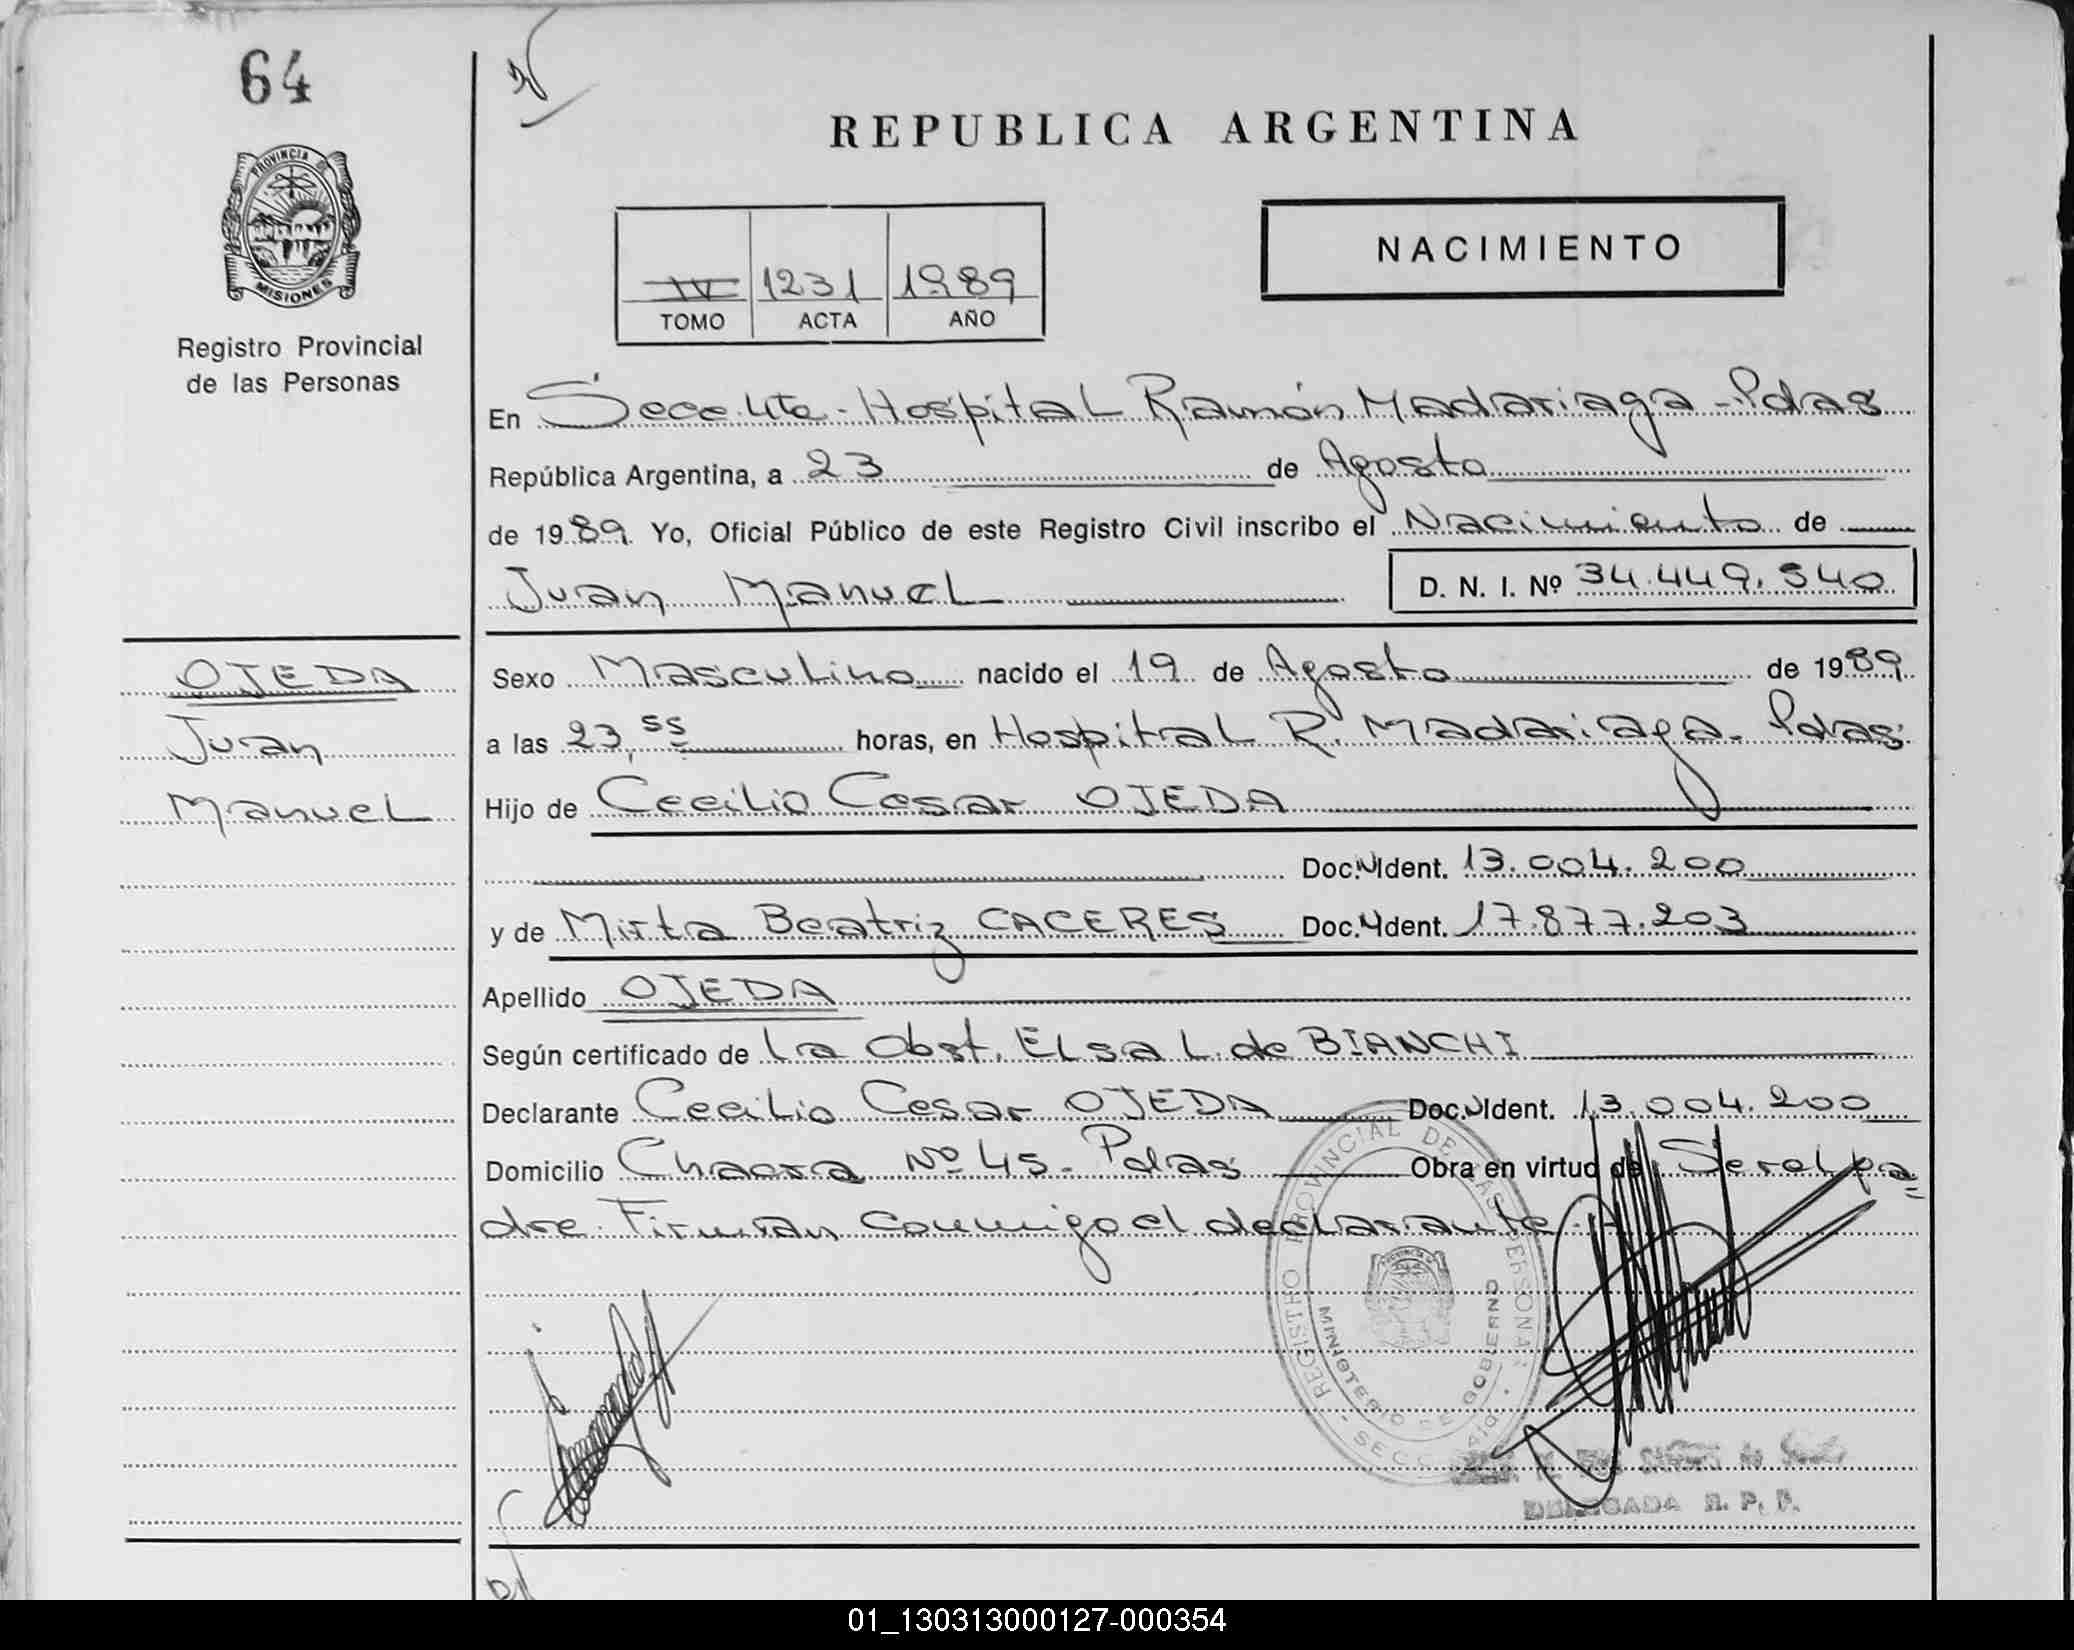 64
REPUBLICA ARGENTINA
PROVINCIA DE
MISIONES
Registro Provincial
de las Personas
NACIMIENTO
IV 1231 1989
TOMO ACTA AÑO
En Secc. 4ta - Hospital Ramón Madariaga - Pdas
República Argentina, a 23 de Agosto
de 1989. Yo, Oficial Público de este Registro Civil inscribo el Nacimiento de
Juan Manuel D. N. I. Nº 34.449.540
OJEDA
Juan
Manuel
Sexo Masculino nacido el 19 de Agosto de 1989
a las 23,55 horas, en Hospital R. Madariaga - Pdas
Hijo de Cecilio Cesar OJEDA
Doc. N Ident. 13.004.200
y de Mirta Beatriz CACERES Doc. N Ident. 17.877.203
Apellido OJEDA
Según certificado de la Obst. Elsa L. de BIANCHI
Declarante Cecilio Cesar OJEDA Doc. N Ident. 13.004.200
Domicilio Chacra Nº 45 - Pdas Obra en virtud de Ser el pa
dre. Firman conmigo el declarante
REGISTRO PROVINCIAL DE LAS PERSONAS
MINISTERIO DE GOBIERNO
DELEGADA R. P. P.
01_130313000127-000354